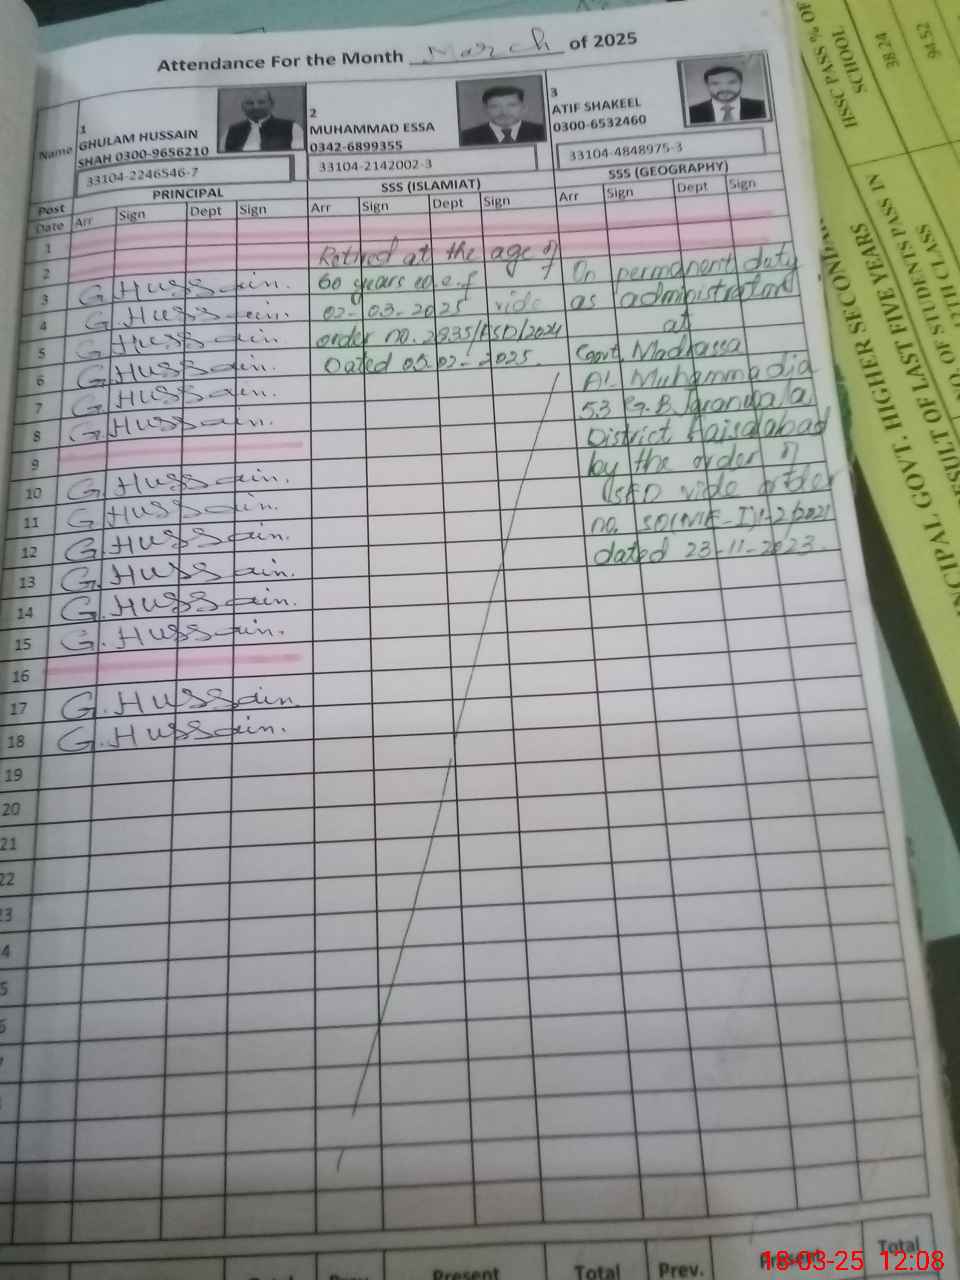 Attendance For the Month March of 2025
Name
1
GHULAM HUSSAIN
SHAH 0300-9656210
33104-2246546-7
2
MUHAMMAD ESSA
0342-6899355
33104-2142002-3
3
ATIF SHAKEEL
0300-6532460
33104-4848975-3
Post PRINCIPAL SSS (ISLAMIAT) SSS (GEOGRAPHY)
Date Arr Sign Dept Sign Arr Sign Dept Sign Arr Sign Dept Sign
1
2
3 G.Hussain.
4 G.Hussain.
5 G.Hussain.
6 G.Hussain.
7 G.Hussain.
8 G.Hussain.
9
10 G.Hussain.
11 G.Hussain.
12 G.Hussain.
13 G.Hussain.
14 G.Hussain.
15 G.Hussain.
16
17 G.Hussain.
18 G.Hussain.
19
20
21
22
23
Retired at the age of
60 years w.e.f
02-03-2025 vide
order no. 2835/FSD/2024
Dated 05-02-2025.
On permanent duty
as administrator
at
Govt. Madrassa
Al. Muhammadia
53 G.B. Jaranwala
District Faisalabad
by the order of
vide order
dated 23-11-2023.
Present Total Prev. Present Total
HSSC PASS % OF
SCHOOL
38.24
94.52
GOVT. HIGHER SECONDA
RESULT OF LAST FIVE YEARS
NO. OF STUDENTS PASS IN
CLASS
18-03-25 12:08